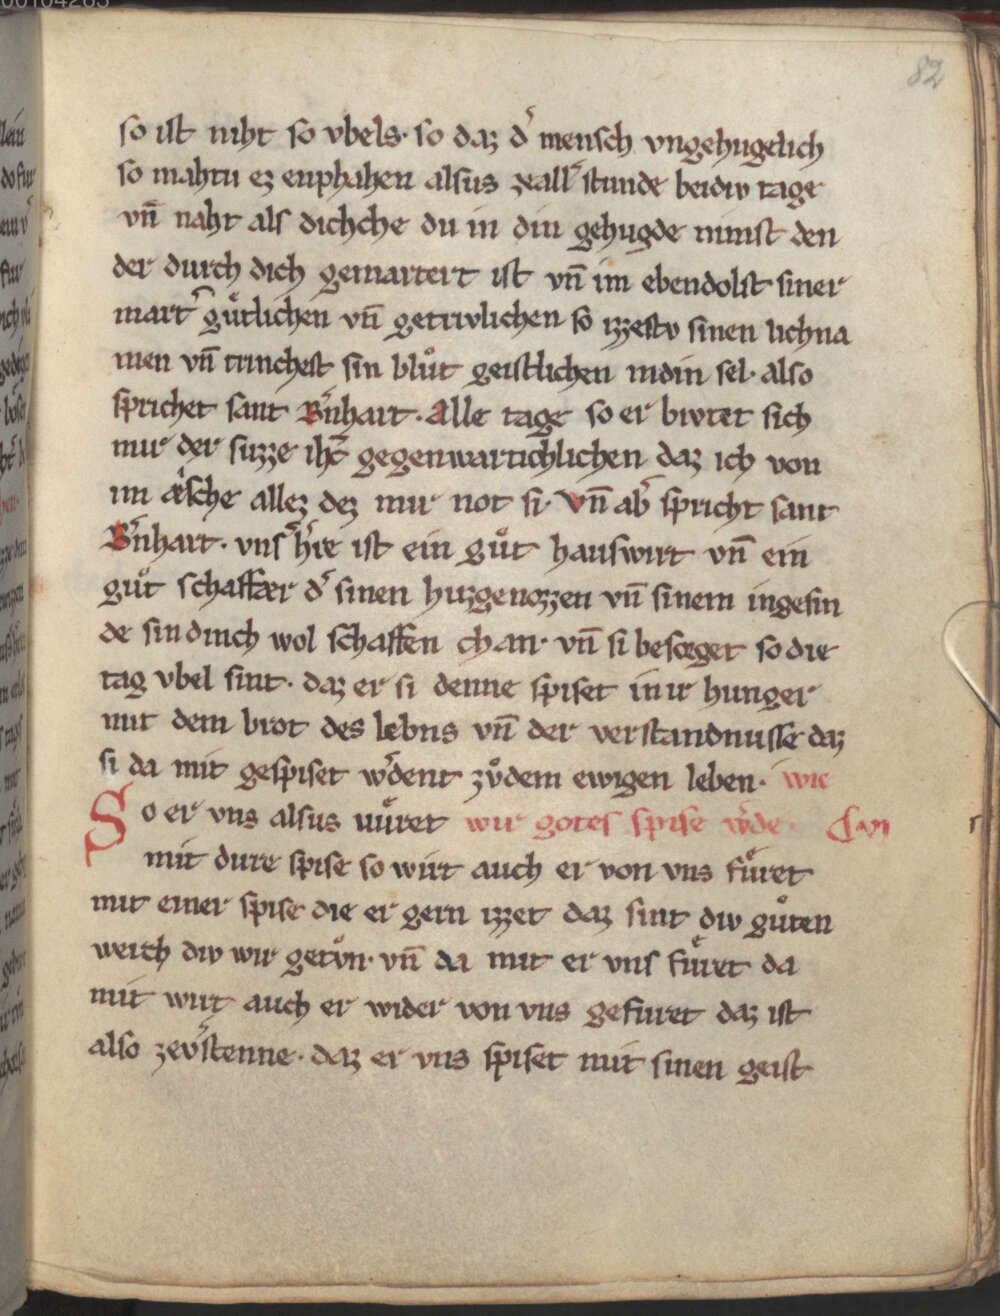 82
so ist niht so vbels· so daz d͛ mensch vngehugelich
so mahtu ez enphahen alsus zeall͛ stunde beidiv tage
vn̄ naht als dichche du in din gehugde nimst den
der durch dich gemartert ist vn̄ im ebendolst siner
mart͛ gůtlichen vn̄ getrivlichen so izzestv sinen lichna
men vn̄ trinchest sin blůt geistlichen indin sel· also
sprichet sant B͛nhart· Alle tage so er bivtet sich
mir der suzze ihc̄ gegenwartichlichen daz ich von
im æische allez dez mir not si· Vn̄ ab͛ spricht sant
B͛nhart· vnſ h͛re ist ein gůt hauswirt vn̄ ein
gůt schaffær d͛ sinen huzgenozzen vn̄ sinem ingesin
de sin dinch wol schaffen chan· vn̄ si besorget so die
tag vbel sint· daz er si denne spiset in ir hunger
mit dem brot des lebns vn̄ der verstandnusse daz
si da mit gespiset w͛dent zůdem ewigen leben· wie
So er vns alsus vůret wir gotes spise w͛de· C vi
mit dire spise so wirt auch er von vns fůret
mit einer spise die er gern izzet daz sint div gůten
werch div wir getůn· vn̄ da mit er vns fůret da
mit wirt auch er wider von vns gefuret daz ist
also zev͛stenne· daz er vns spiset mit sinen geist